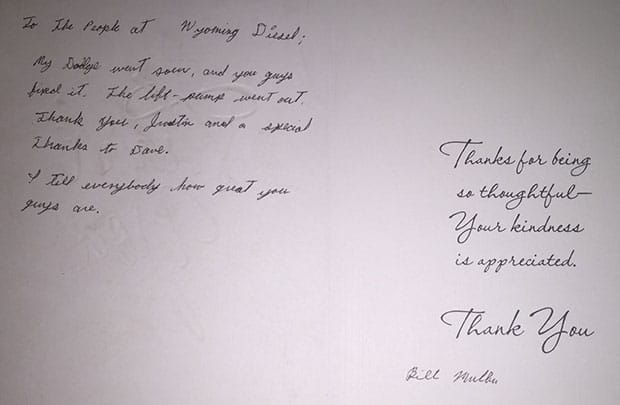 To The People at Wyoming Diesel;
My Dodge went sour, and you guys
fixed it. The lift-pump went out.
Thank You, Justin and a special
Thanks to Dave.
I tell everybody how great you
guys are.
Thanks for being
so thoughtful—
Your kindness
is appreciated.
Thank You
Bill